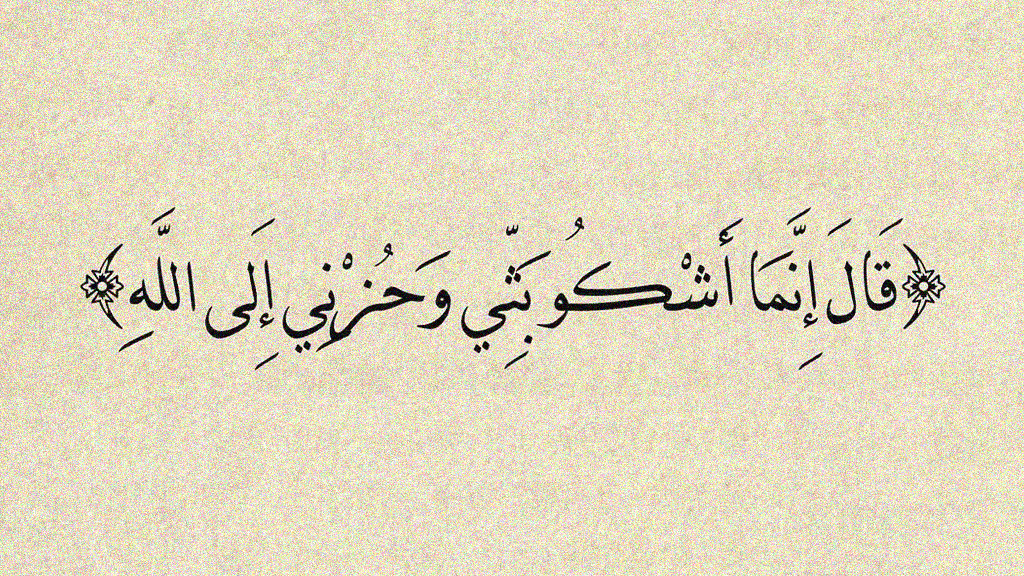 ﴿قَالَ إِنَّمَا أَشْكُو بَثِّي وَحُزْنِي إِلَى اللَّهِ﴾